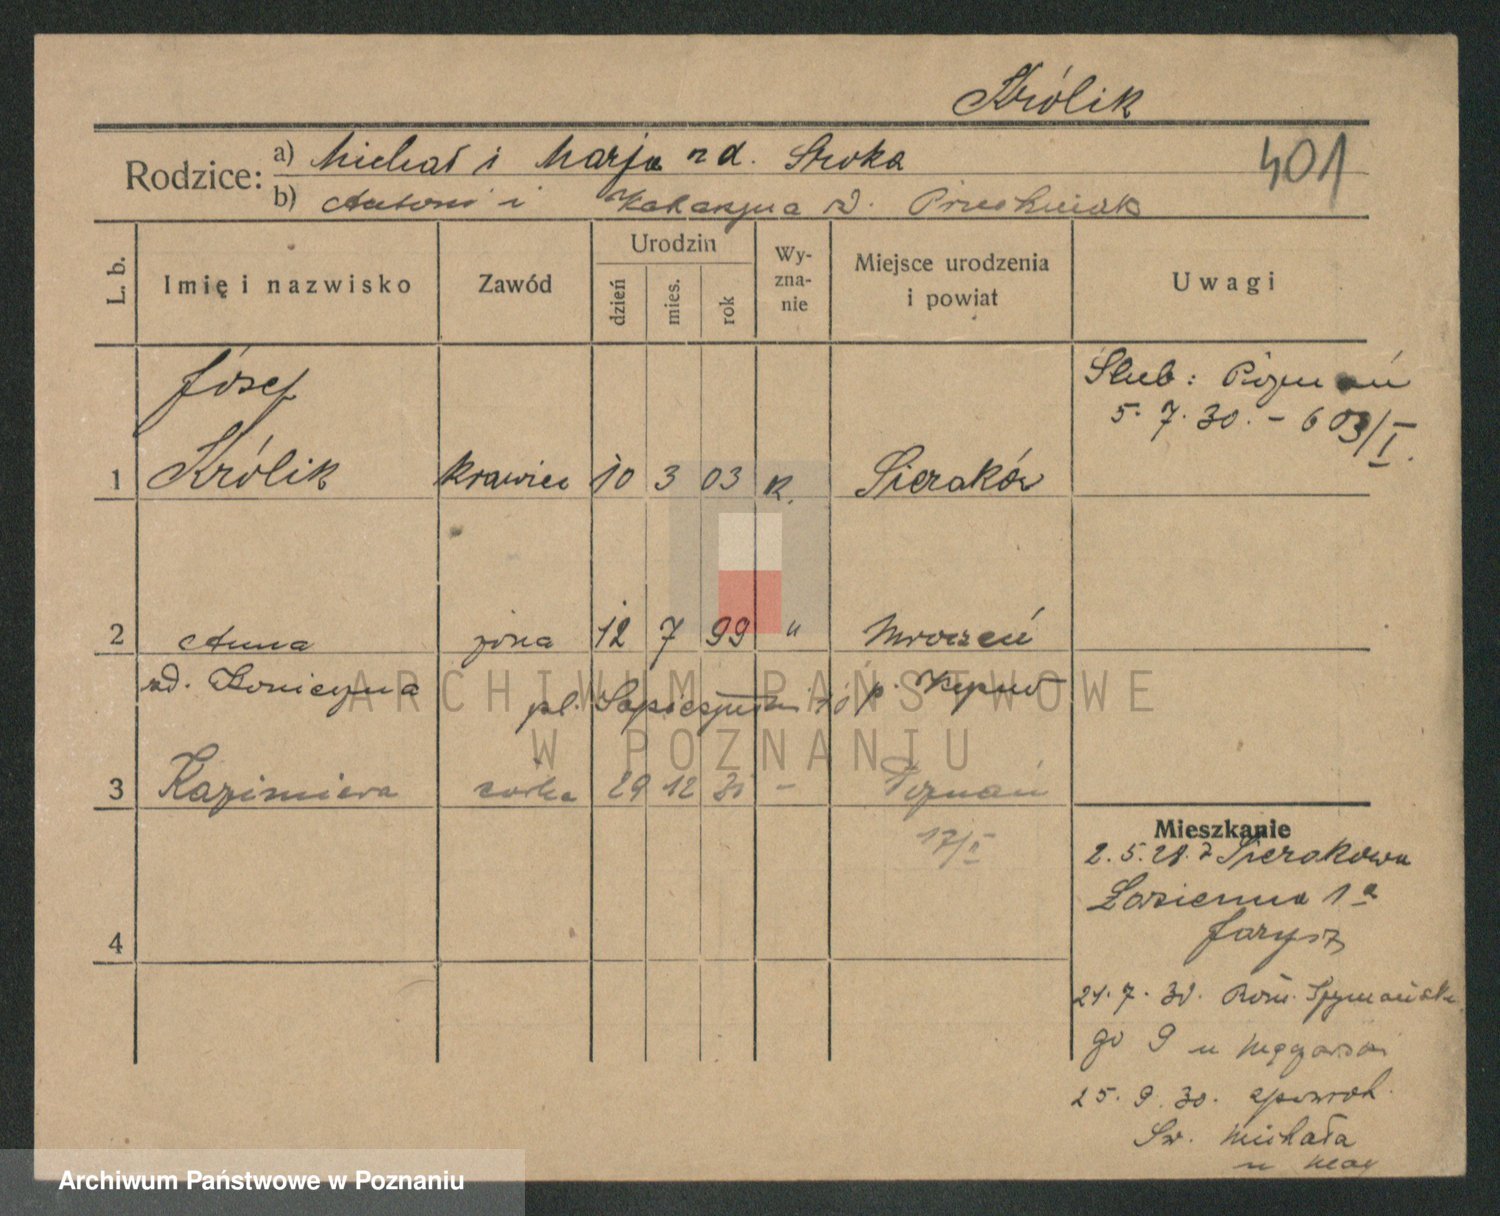 Królik
401
Rodzice: a) Michał i Marja zd. Sroka
b) Antoni i Katarzyna zd.
L. b.
Imię i nazwisko
Zawód
Urodzin
dzień
mies.
rok
Wy-
zna-
nie
Miejsce urodzenia
i powiat
Uwagi
Józef
Ślub: Poznań
5. 7. 30. - 603/I.
1 Królik krawiec 10 3 03 K. Sieraków
2 Anna żona 12 7 99 " Mroczeń
zd. Konieczna
p. Kępno
pl. Sapieżyński
3 Kazimiera córka 29 12 30 - Poznań
17/I
4
Mieszkanie
2. 5. 28. z Sierakowa
Łazienna 1a
21. 7. 30. Rom. Szymańskie
go 9 u
25. 9. 30. zpowrot.
Św. Michała
u
ARCHIWUM PAŃSTWOWE
W POZNANIU
Archiwum Państwowe w Poznaniu